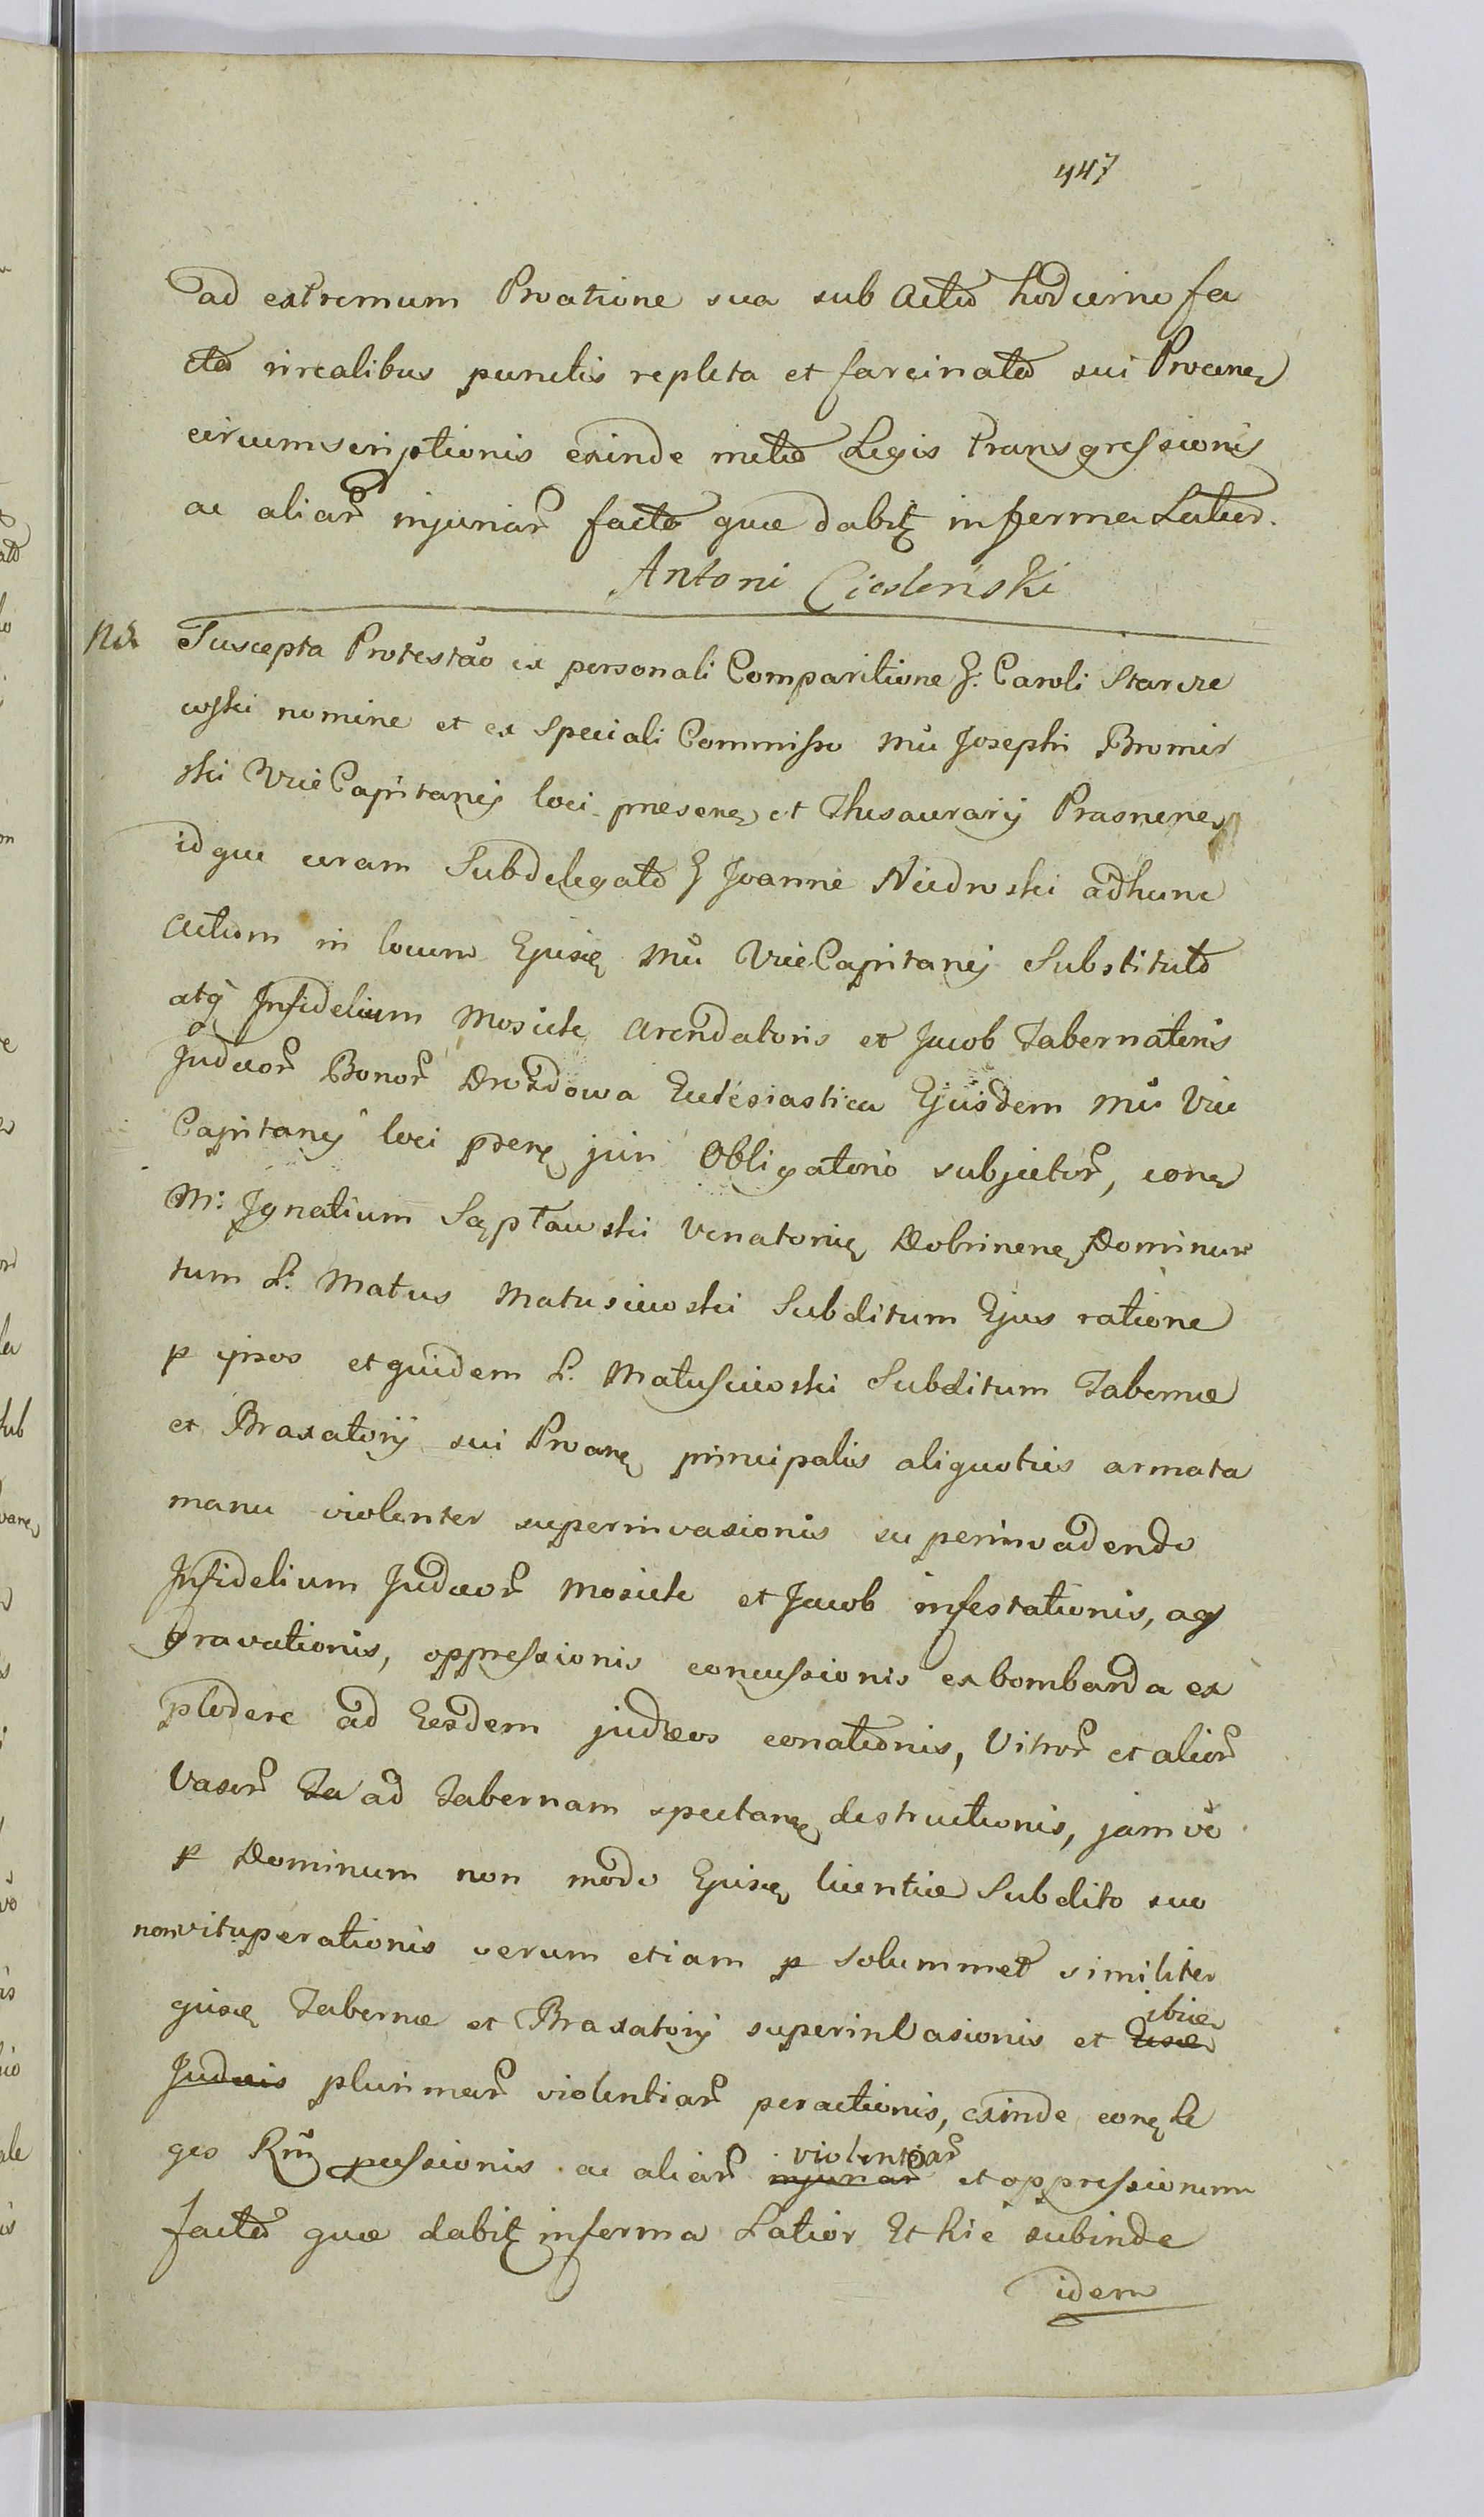 447
ad extremum Proatione sua sub Actu hodierno fa
cta irrealibus punctis repleta et farcinata sui Procine
circumscriptionis exinde metu Legis transgressionis
ac aliar injuriar facta quæ dabit in ferma Latius.
Antoni Cieslenski
Nd
Suscepta Protestao ex personali Comparitione G. Caroli Starcze
wski nomine et ex Speciali Commisso Mu Josephi Bromir
ski ViceCapitanej loci præsene et Thesaurarij Prasnene
idque coram Subdelegato G Joanne Niedroski adhunc
Actum in locum Ejusq Mu ViceCapitanej Substituto
atq Infidelium Mosiek Arendatoris et Jacob Tabernatoris
Judæor Bonor Drozdowa Eclesiastica Ejusdem Mu Vice
Capitanej loci præne juri Obligatorio subjector, cone
M: Ignatium Sęptawski Venatorię Dobrinene Dominum
tum L. Matus Matusiewski Subditum Ejus ratione
p ipsos et quidem L. Matusiewski Subditum Tabernæ
et Braxatorij sui Proane principalis aliquoties armata
manu violenter superinvasionis superinvadendo
Infidelium Judæor Mosiek et Jacob infestationis, ag
gravationis, oppressionis concussionis ex bombarda ex
plodere ad Eosdem judæos conationis, Vitror et alior
Vasor Ta ad Tabernam spectane destructionis, jam vo
p Dominum non modo Ejusq licentiæ Subdito suo
non vituperationis verum etiam p solummet similiter
ejusq Tabernæ et Braxatorij superinvasionis et Eisde ibide
Judæis plurimar violentiar peractionis, exinde cone Le
ges Rni passionis ac aliar injuriar violentiar et oppressionum
facta quæ dabit in ferma Latior Et hic subinde
idem